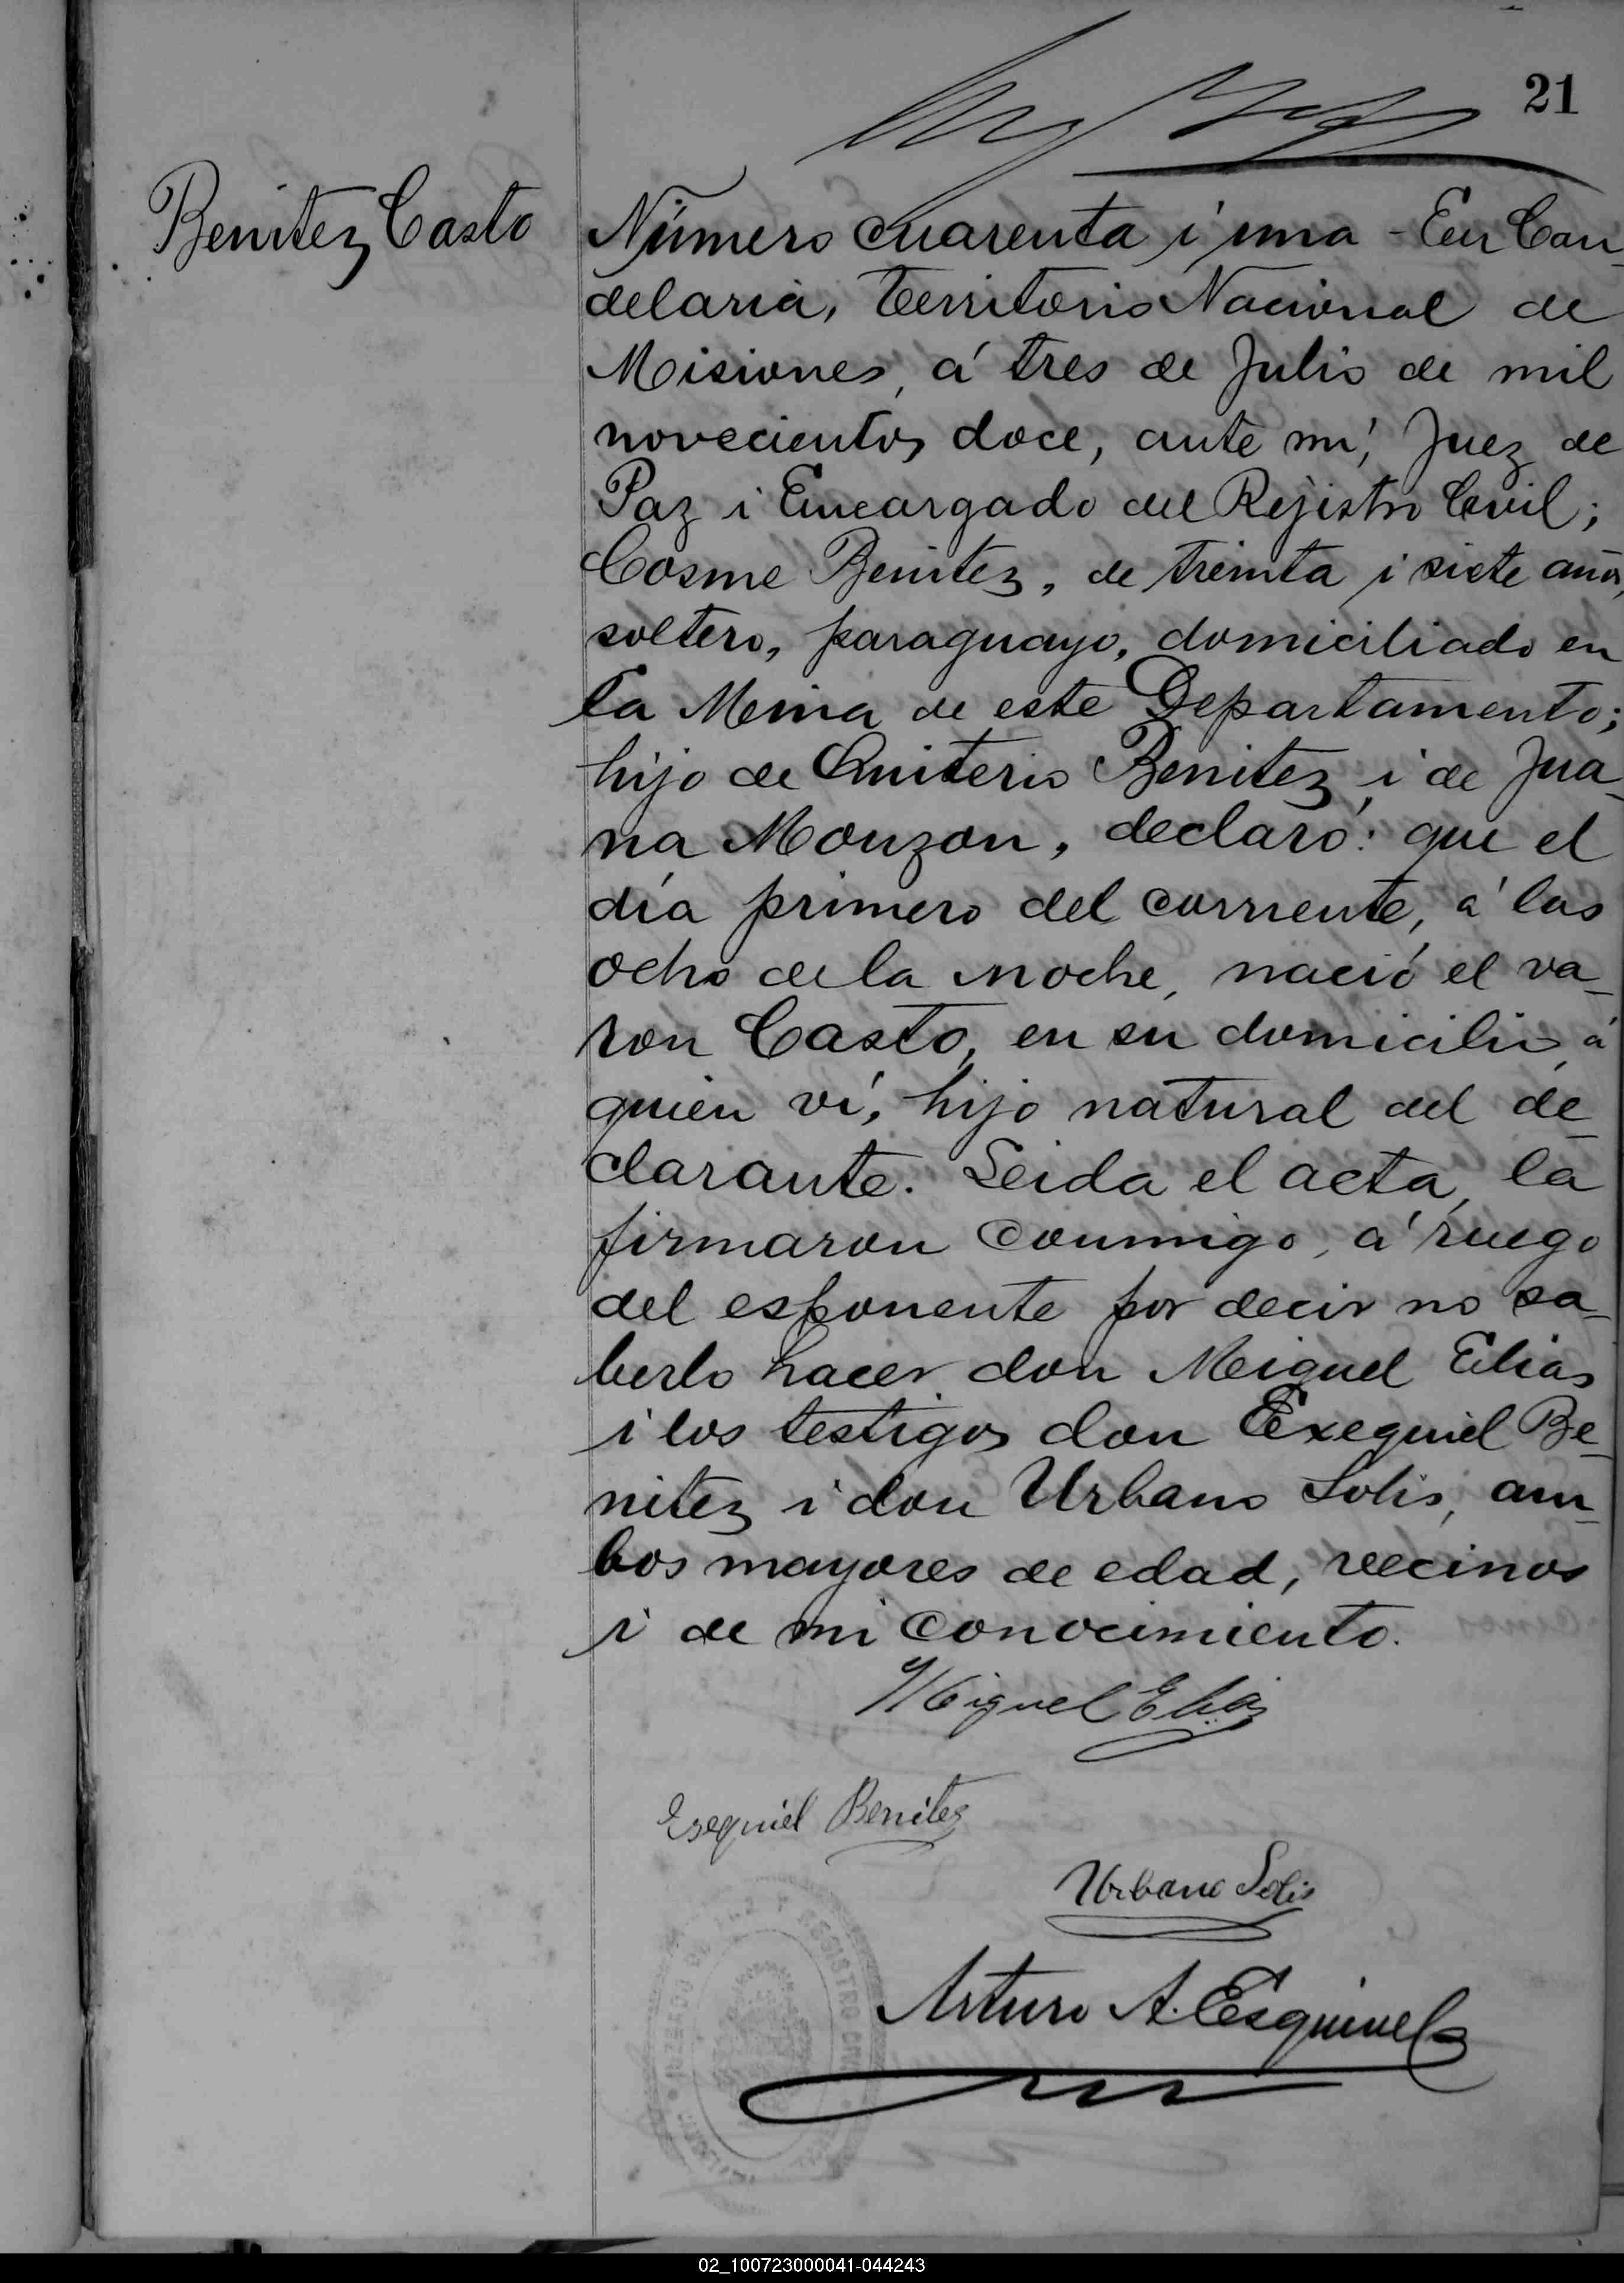 21
Benitez Casto
Número cuarenta i una - En Can
delaria, Territorio Nacional de
Misiones, á tres de Julio de mil
novecientos doce, ante mí, Juez de
Paz i Encargado del Rejistro Civil;
Cosme Benitez, de treinta i siete años,
soltero, paraguayo, domiciliado en
la Mina de este Departamento;
hijo de Quiterio Benitez i de Jua_
na Monzon, declaró: que el
día primero del corriente, á las
ocho de la noche, nació el va_
ron Casto, en su domicilio, á
quien ví, hijo natural del de_
clarante. Leida el acta, la
firmaron conmigo, á ruego
del esponente por decir no sa_
berlo hacer don Miguel Elias
i los testigos don Exequiel Be_
nitez i don Urbano Solis, am_
bos mayores de edad, vecinos
i de mi conocimiento.
Miguel Elias
Esequiel Benitez
Urbano Solis
Arturo A. Esquivel
REGISTRO CIVIL
02_100723000041-044243